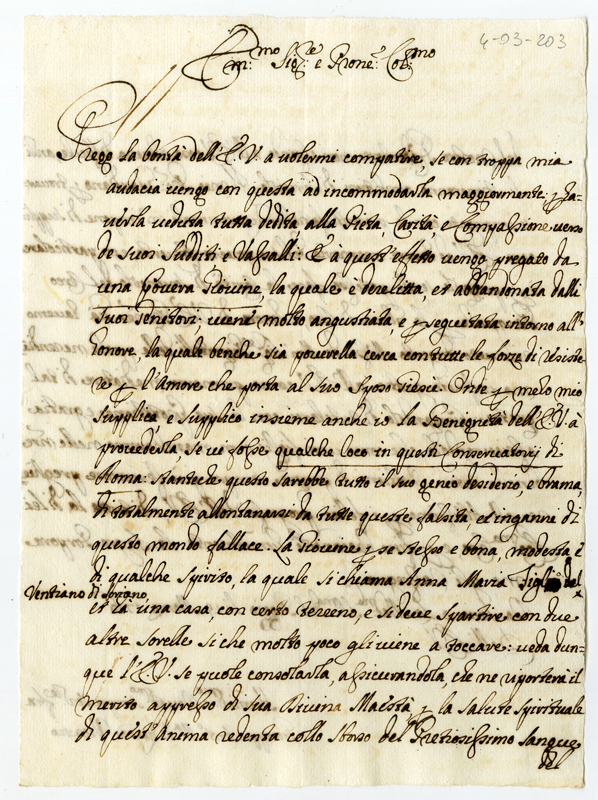 4-03-203
Em:mo Sig:re e Prone Col:mo
Prego la bontà dell'E. V. a volermi compatire, se con troppa mia
audacia vengo con questa ad incommodarla maggiormente; p ha-
verla veduta tutta dedita alla Pieta, Carità, e Compassione verso
de suoi sudditi e Vassalli: E à quest'effetto vengo pregato da
una povera Giovine, la quale è derelitta, et abbandonata dalli
suoi Genitori; viene molto angustiata, e pseguitata intorno all'
honore, la quale benche sia poverella cerca con tutte le forze di resiste-
re p l'Amore che porta al suo Sposo Giesù: Onde p melo mio
supplica, e supplico insieme anche io la Benegnità dell'E. V. à
provederla, se vi fosse qualche loco in questi Conservatorij di
Roma: stanteche questo sarebbe tutto il suo genio desiderio, e brama,
di totalmente allontanarsi da tutte queste falsità, et inganni di
questo mondo fallace. La Giovine p se stesso e bona, modesta è
di qualche spirito, la quale si chiama Anna Maria figlia del
Ventiano di Soriano,
et là una casa, con certo terreno, e si deve spartire con due
altre sorelle si che molto poco gli viene a toccare: veda dun-
que l'E. V. se puole consolarla, assicurandola, che ne riporterà il
merito appresso di sua Divina Maestà, p la salute spirituale
di quest'anima redenta collo sborso del Pretiosissimo sangue
del